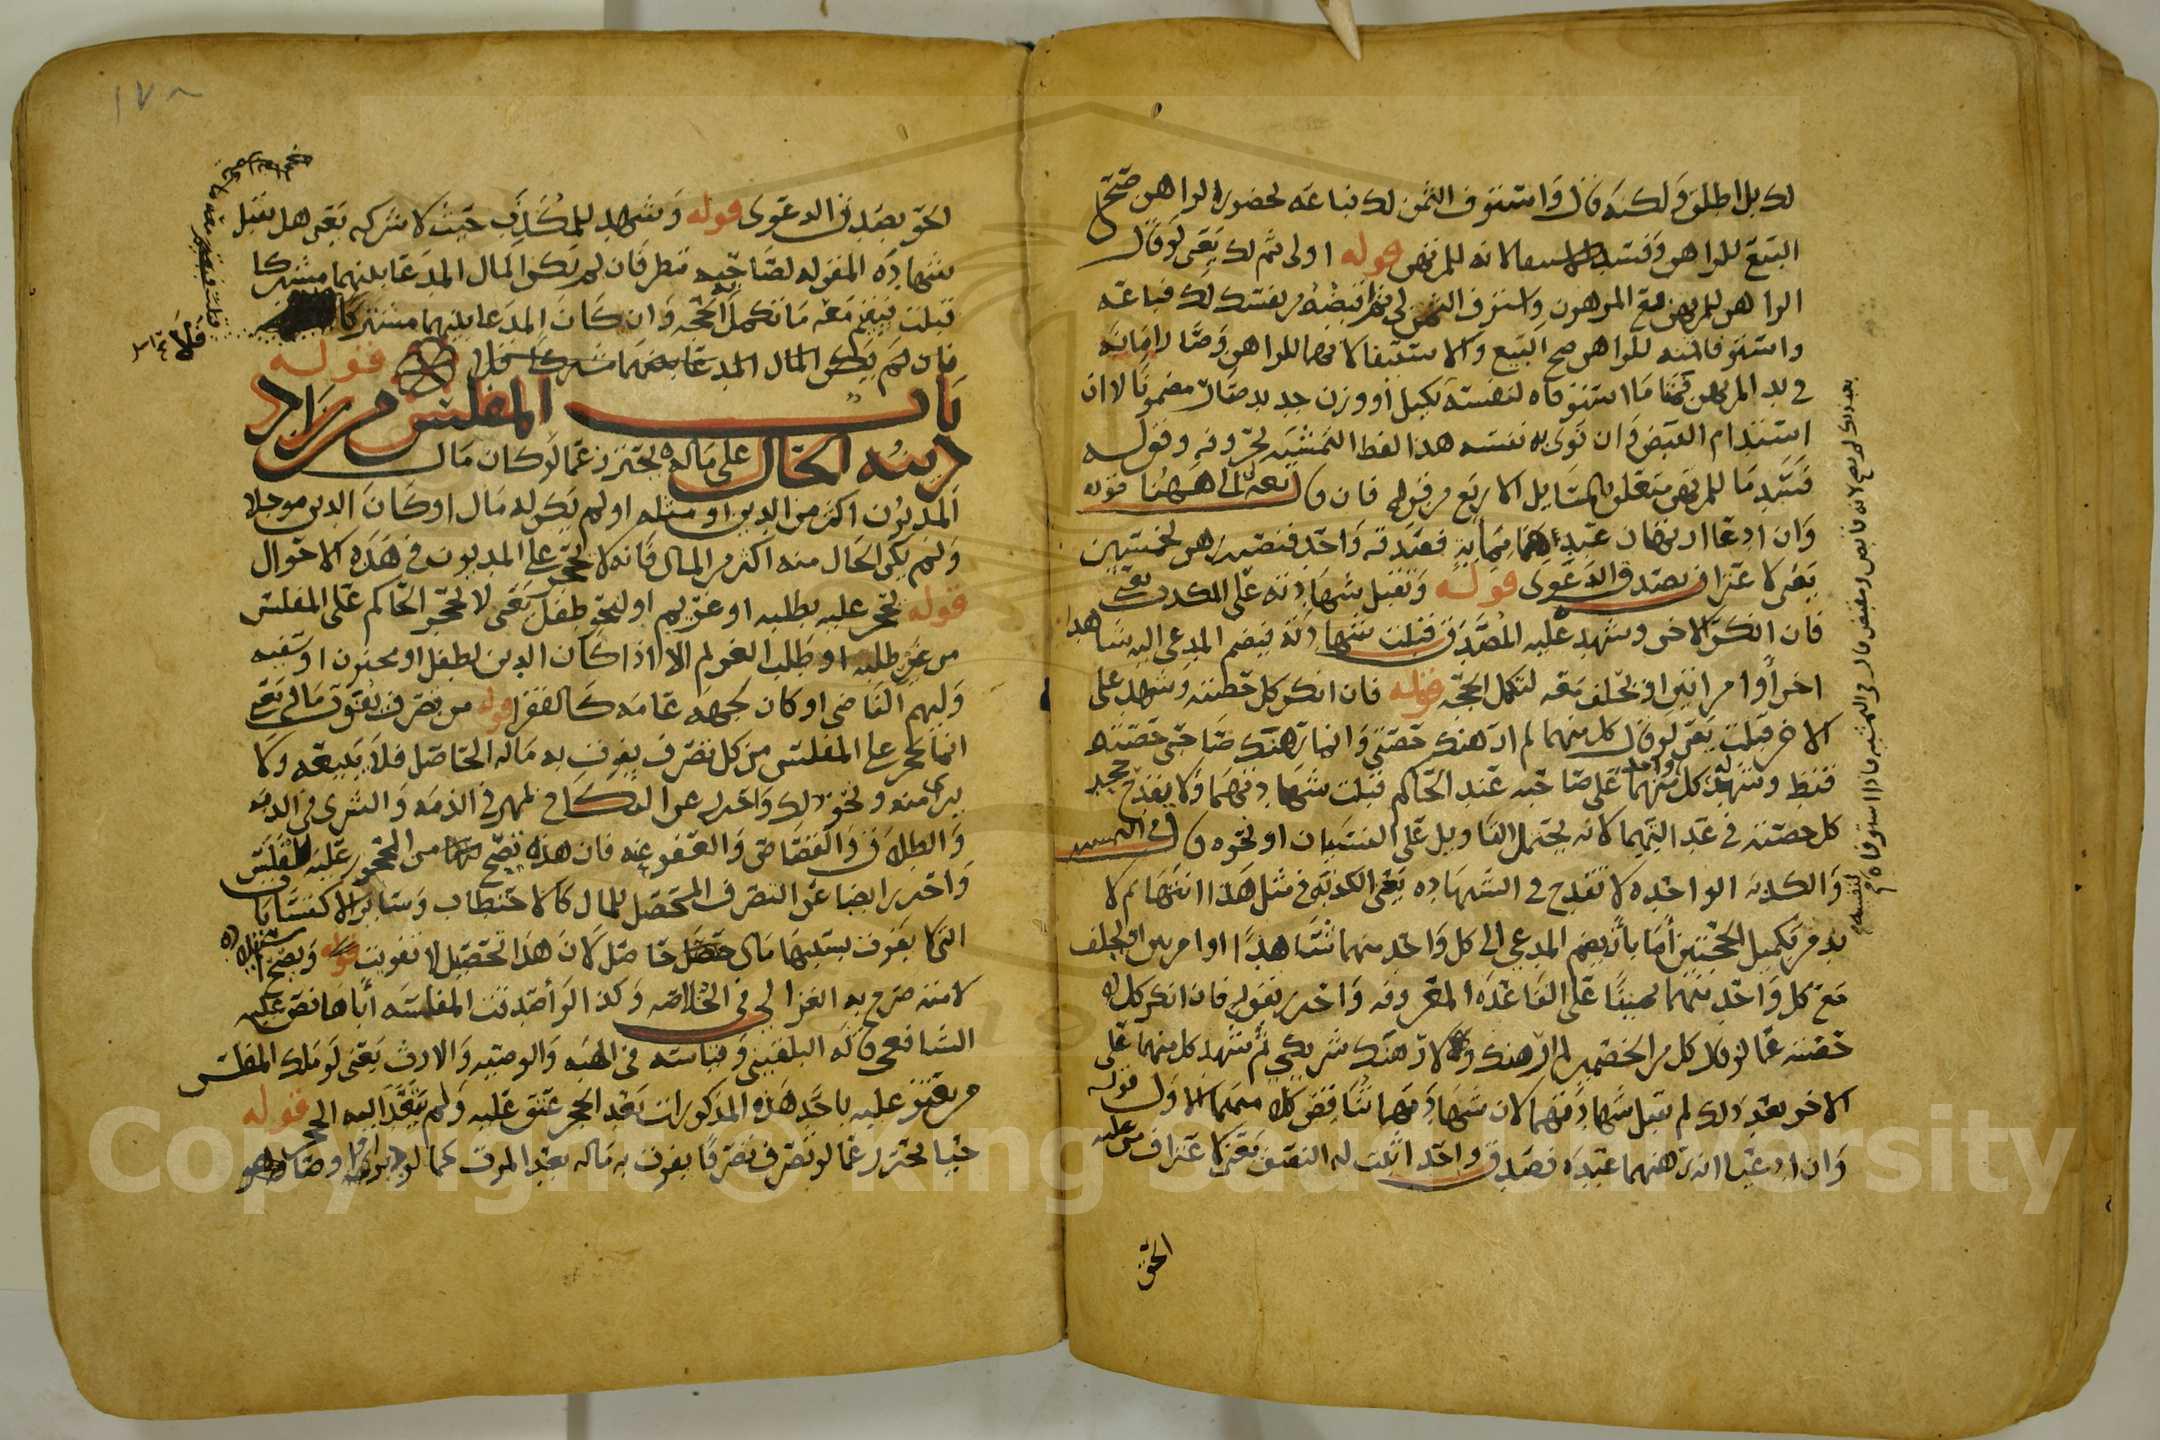 لك بل اطلق ولكنه قال واستوف الثمن لك فباعه بحضور الراهن صح
البيع للراهن وفسد الاستيفا لانه للمرتهن قوله اولى ثم لك يعني لو قال
الراهن للمرتهن بع المرهون واستوف الثمن لي ثم اقبضه لنفسك لك فباعه
واستوفا ثمنه للراهن صح البيع والاستيفا لانهما للراهن وصار امانه
في يد المرتهن فمتا ما استوفاه لنفسه بكيل او وزن جديد صار مضمونا لا ان
استدام القبض وان نوى به نفسه هذا لفظ التمشيه بحروفه وقوله
فسد ما للمرتهن متعلق بالمسايل الاربع من قوله فان قال بعه لي الى ههنا قوله
وان ادعا ارتهان عبدهما بمايه فصدقه واحد فنصيبه رهن بخمسين
يعني لاعترافه بصدق الدعوى قوله وتقبل شهادته على المكذب يعني
فان انكر الاخر وشهد عليه المصدق قبلت شهادته فيضم المدعي اليه شاهدا
اخر او امراتين او يحلف معه لتكمل الحجه قوله فان انكر كل حصته وشهد على
الاخر قبلت يعني لو قال كل منهما لم ارتهنك حصتي وانما رهنك صاحبي حصته
فقط وشهد كل واحد منهما على صاحبه عند الحاكم قبلت شهادتهما ولا يقدح جحد
كل حصته في عدالتهما لانه يحتمل التاويل على النسيان او نحوه قال في التمشيه
والكذبه الواحده لا تقدح في الشهاده يعني الكذبه في مثل هذا انتهى ثم لا
بد من تكميل الحجتين اما بان يضم المدعي الى كل واحد منهما شاهدا او امراتين او يحلف
مع كل واحد منهما يمينا على القاعده المعروفه واحترز بقوله فان انكر كل
حصته عما لو قال كل من الخصمين لم ارتهنك ولا رهنك شريكي ثم شهد كل منهما على
الاخر بعد ذلك لم تقبل شهادتهما لان شهادتهما تناقض كلامهما الاول قوله
وان ادعيا انه رهنهما عبده فصدق واحدا ثبت له النصف يعني لاعتراف من عليه
الحق
الحق بصدق الدعوى قوله وشهد للمكذب حيث لا شركه يعني هل تقبل
شهادة المقر له لصاحبه نظر فان لم يكن المال المدعا بينهما مشتركا
قبلت فيقيم معه ما تكمل الحجه وان كان المدعا بينهما مشتركا
فان لم يكن المال المدعا بينهما مشتركا قبل قوله
باب المفلس من زاد
دينه الحال على ماله يحترز عما لو كان مال
المديون اكثر من الدين او مثله او لم يكن له مال او كان الدين موجلا
ولم يكن الحال منه اكثر من المال فانه لا يحجر على المديون في هذه الاحوال
قوله يحجر عليه بطلبه او غريم او لنحو طفل يعني لا يحجر الحاكم على المفلس
من غير طلبه او طلب الغريم الا اذا كان الدين لطفل او مجنون او سفيه
وليهم القاضي او كان لجهة عامه كالفقرا قوله من تصرف يفوت مالي يعني
انما يحجر على المفلس من كل تصرف يفوت به ماله الحاصل فلا يبيعه ولا
يبرى منه ونحو ذلك واحترز عن النكاح لمهر في الذمه والشرى في الذمه
والطلاق والقصاص والعفو عنه فان هذه تصح من المحجور عليه بفلس
واحترز ايضا عن التصرف المحصل للمال كالاحتطاب وساير الاكتسابات
التي لا يفوت بسببها مال حاصل لان هذا تحصيل لا تفويت قوله ويصح استيلاده
لامته صرح به الغزالي في الخلاصه وكذا لو اصدقت المفلسه اباها نص عليه
الشافعي قاله البلقيني وقياسه في الهبه والوصيه والارث يعني لو ملك المفلس
من يعتق عليه باحد هذه المذكورات بعد الحجر عتق عليه ولم يتعد اليه الحجر قوله
حيا يحترز عما لو تصرف تصرفا يفوت به ماله بعد الموت كما لو